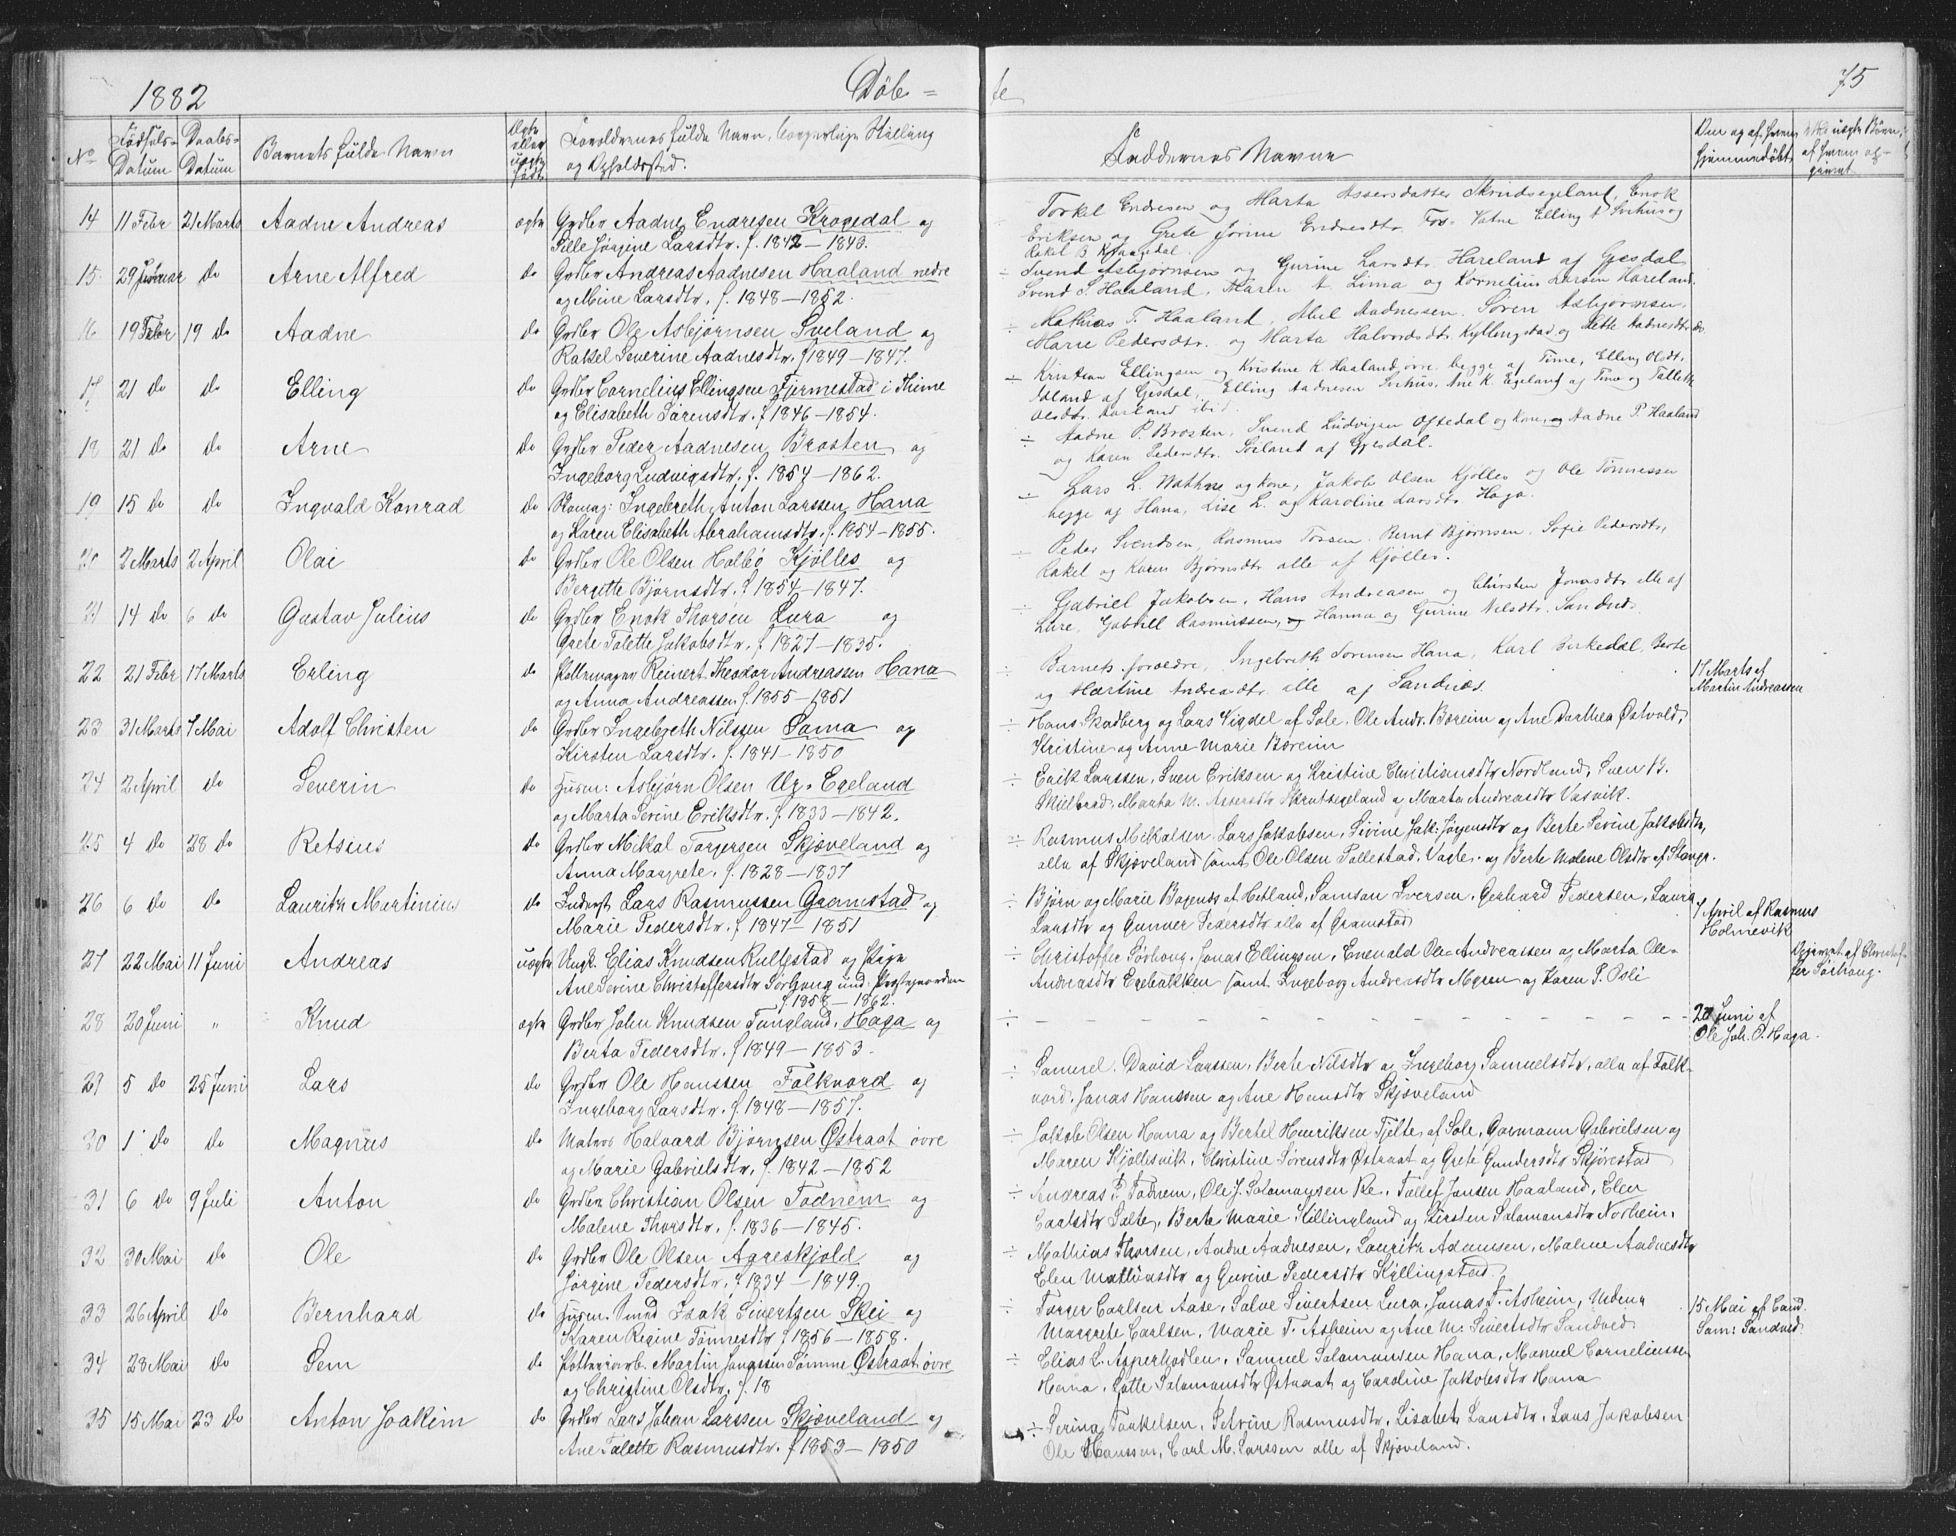 1882 Døb= te 75
No Fødsels-Datum Daabs-Datum Barnets fulde Navn Ægte eller uægte født Forældrenes fulde Navn, borgerlige Stilling og Opholdssted. Faddernes Navne Om og af hvem hjemmedøbt
14 11 Febr 21 Marts Aadne Andreas ægte Grdbr Aadne Endresen Krogedal og Torkel Endresen og Marta Assersdatter Skrudsegeland, Enok
Sille Jørgine Larsdtr. f. 1842–1843. Eriksen og Grete Jorine Endresdtr. Elling
Rakel B. Kraagedal.
15. 29 Januar do Arne Alfred do Grdbr Andreas Aadnesen Haaland nedre ÷ Svend Asbjørnsen og Gurine Larsdtr. Hareland af Gjesdal
og Mine Larsdtr. f. 1848–1852. Svend S. Haaland, Maren A. Lima og Kornelius Larsen Hareland.
16 19 Febr 19 do Aadne do Grdbr Ole Asbjørnsen Sveland og ÷ Mathias T. Haaland, Abel Aadnessen, Søren Asbjørnsen,
Rakel Severine Aadnesdtr. f 1849–1847. Marie Pedersdtr. og Marta Halvorsdtr. Kyllingstad og Aadnesdtr. do
17 21 do do Elling do Grdbr Cornelius Ellingsen Fjermestad i Thime ÷ Kristian Ellingsen og Kristine K. Haaland øvre begge af Time, Elling Olsdtr.
og Elisabeth Sørensdtr. f 1846–1854. Idland af Gjesdal, Elling Aadnesen Svihus, Ane K. Egeland af Time og Tallette
Olsdtr. Aarland ibid.
18 21 do do Arne do Grdbr Peder Aadnesen Brosten og ÷ Aadne P. Brosten, Svend Ludvigsen Oftedal og Kone, og Aadne P. Haaland
Ingeborg Ludvigsdtr. f. 1857–1862. og Karen Pedersdtr. Sørland af Gjesdal.
19 15 do do Ingvald Konrad do Ingebreth Anton Larssen Hana ÷ Lars L. Wathne og Kone, Jakob Olsen Kjølles og Ole Tønnessen
og Karen Elisabeth Abrahamsdtr. f. 1854–1855. begge af Hana, Lise L. og Karoline Larsdtr. Haga.
20 2 Marts 2 April Olai do Grdbr Ole Olsen Holbø Kjølles og ÷ Peder Svendsen, Rasmus Torsen, Bernt Bjørnsen, Sofie Pedersdtr,
Bergitte Bjørnsdtr. f 1854–1847. Rakel og Karen Bjørnsdtr alle af Kjølles.
21 14 do 6 do Gustav Julius do Grdbr Enok Thorsen Lura og ÷ Gabriell Jakobsen, Hans Andreasen og Chirsten Jonasdtr alle af
Grete Talette Jakobsdtr. f 1827–1835. Lure, Gabriell Rasmussen, og Hanna og Gurine Nilsdtr. Sandnes
22 21 Febr 17 Marts Erling do Pottemager Reinert Theodor Andreassen Hana ÷ Barnets forældre, Ingebreth Sørensen Hana, Karl Birkedal, Berte 17 Marts af
og Anna Andreassen f 1855–1851 og Martine Andreasdtr. alle af Sandnes. Martin Andreassen
23 31 Marts 7 Mai Adolf Christen do Grdbr Ingebreth Nilssen Soma og ÷ Hans Skadberg og Lars Vigdel af Sole, Ole Andr. Børeim og Ane Dorthea Østvold,
Kirsten Larsdtr. f. 1841–1850 Kristine og Anne Marie Børeim
24 2 April do Severin do Husm: Asbjørn Olsen Ur, Egeland ÷ Erik Larssen, Sven Eriksen og Kristine Christiansdtr Nordland, Sven B.
og Marta Serine Eriksdtr. f. 1833–1842. Skjelbred, Marta M. Assersdtr Skrutsegeland og Marta Andreasdtr Vasvik.
25 4 do 28 do Retsius do Grdbr Mikal Torgersen Skjæveland og ÷ Rasmus Mikalsen, Lars Jakobsen, Sivine Jak: Jørgensdtr og Berte Sevine Jakobsdtr,
Anna Margrete, f. 1828–1837 alle af Skjæveland samt Ole Olsen Tollestad, Vagle, og Berte Malene Olsdtr af Stangr.
26 6 do do Lauritz Martinius do Inderst Lars Rasmussen Gramstad og ÷ Bjørn og Marie Bogenes af Hetland, Samson Iversen, Gerhard Pedersen, Laura 7 April af Rasmus
Marie Pedersdtr. f 1847–1851 Larsdtr og Gunner Pedersdtr alle af Gramstad Holmevik
27 22 Mai 11 Juni Andreas uægte Ungk. Elias Knudsen Kullestad og Pige ÷ Christoffer Sørhoug, Jonas Ellingsen, Enevald Ole Andreassen og Marta Ole- Opgivet af Christof-
Ane Serine Christoffersdtr Sørhoug und. Præstegaarden Andreasdtr Egebakken samt Ingeborg Andreasdtr og Karen P. Osli fer Sørhoug.
f 1858–1862.
28 20 Juni " Knud ægte Grdbr John Knudsen Tungland, Haga og ÷ – – – – – – – – – – – – – 20 Juni af
Berta Pedersdtr. f 1849–1853. Ole Joh. O. Haga.
29 5 do 25 Juni Lars do Grdbr Ole Hanssen Folkvord og ÷ Samuel. David Larssen, Berte Nilsdtr og Ingeborg Samuelsdtr, alle af Folk-
Ingeborg Larsdtr. f. 1848–1857. vord. Jonas Hanssen og Ane Hansdtr Skjæveland
30 1 do do Magnus do Matros Halvard Bjørnsen Østraat øvre ÷ Jakob Olsen Hana og Bertel Henriksen Tjelte af Sole, Gormann Gabrielsen og
og Marie Gabrielsdtr. f. 1842–1852 Maren Kjøllesvik, Christine Sørensdtr Østraat og Grete Gundersdtr Skjørestad
31 6 do 9 Juli Anton do Grdbr Christian Olsen Todnem og ÷ Andreas P. Todnem, Ole J. Salamonsen Re, Tollef Jansen Haaland, Elen
Malene Thorsdtr. f. 1836–1845. Salte, Berte Marie Killingland og Kirsten Salamonsdtr Norheim.
32 30 Mai do Ole do Grdbr Ole Olsen Agreskjold og ÷ Mathias Thorsen, Aadne Aadnesen, Lauritz Adamsen, Malene Aadnesdtr
Jørgine Pedersdtr. f 1834–1849. Elen og Gurine Pedersdtr Kyllingstad.
33 26 April do Bernhard do Husm. Smed Isak Sivertsen Skei og ÷ Torger Carlsen Aase, Salve Sivertsen Lura, Jonas T. Asheim, 15 Mai af Cand.
Karen Regine Tønnesdtr. f 1856–1858. Margrete Carlsen, Marie T. Asheim og Ane M. Sivertsdtr Sandved. Sam: Sandved
34 28 Mai do Sem do Potteriarb. Martin Jonassen Sømme Østraat øvre ÷ Elias L. Asperhodlen, Samuel Salamonsen Hana, Manuel Corneliussen
og Christine Olsdtr. f. 18 Hana, Lotte Salamonsdtr Østraat og Caroline Jakobsdtr Hana
35 15 Mai 23 do Anton Joakim do Grdbr Lars Johan Larssen Skjæveland og ÷ Serina Torkelsen, Petrine Rasmusdtr, Lisabet Larsdtr, Lars Jakobsen
Ane Talette Rasmusdtr. f 1853–1850 Ole Hanssen, Carl M. Larssen alle af Skjæveland.